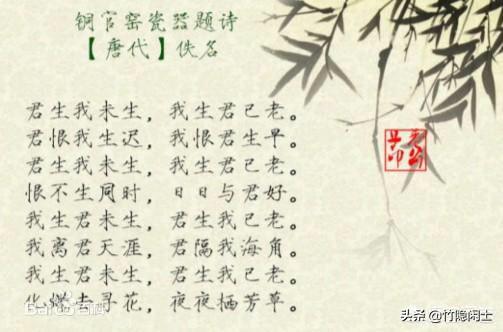 铜官窑瓷器题诗
【唐代】佚名
君生我未生，我生君已老。
君恨我生迟，我恨君生早。
君生我未生，我生君已老。
恨不生同时，日日与君好。
我生君未生，君生我已老。
我离君天涯，君隔我海角。
我生君未生，君生我已老。
化蝶去寻花，夜夜栖芳草。
Baidu百科
头条 @竹隐闲士